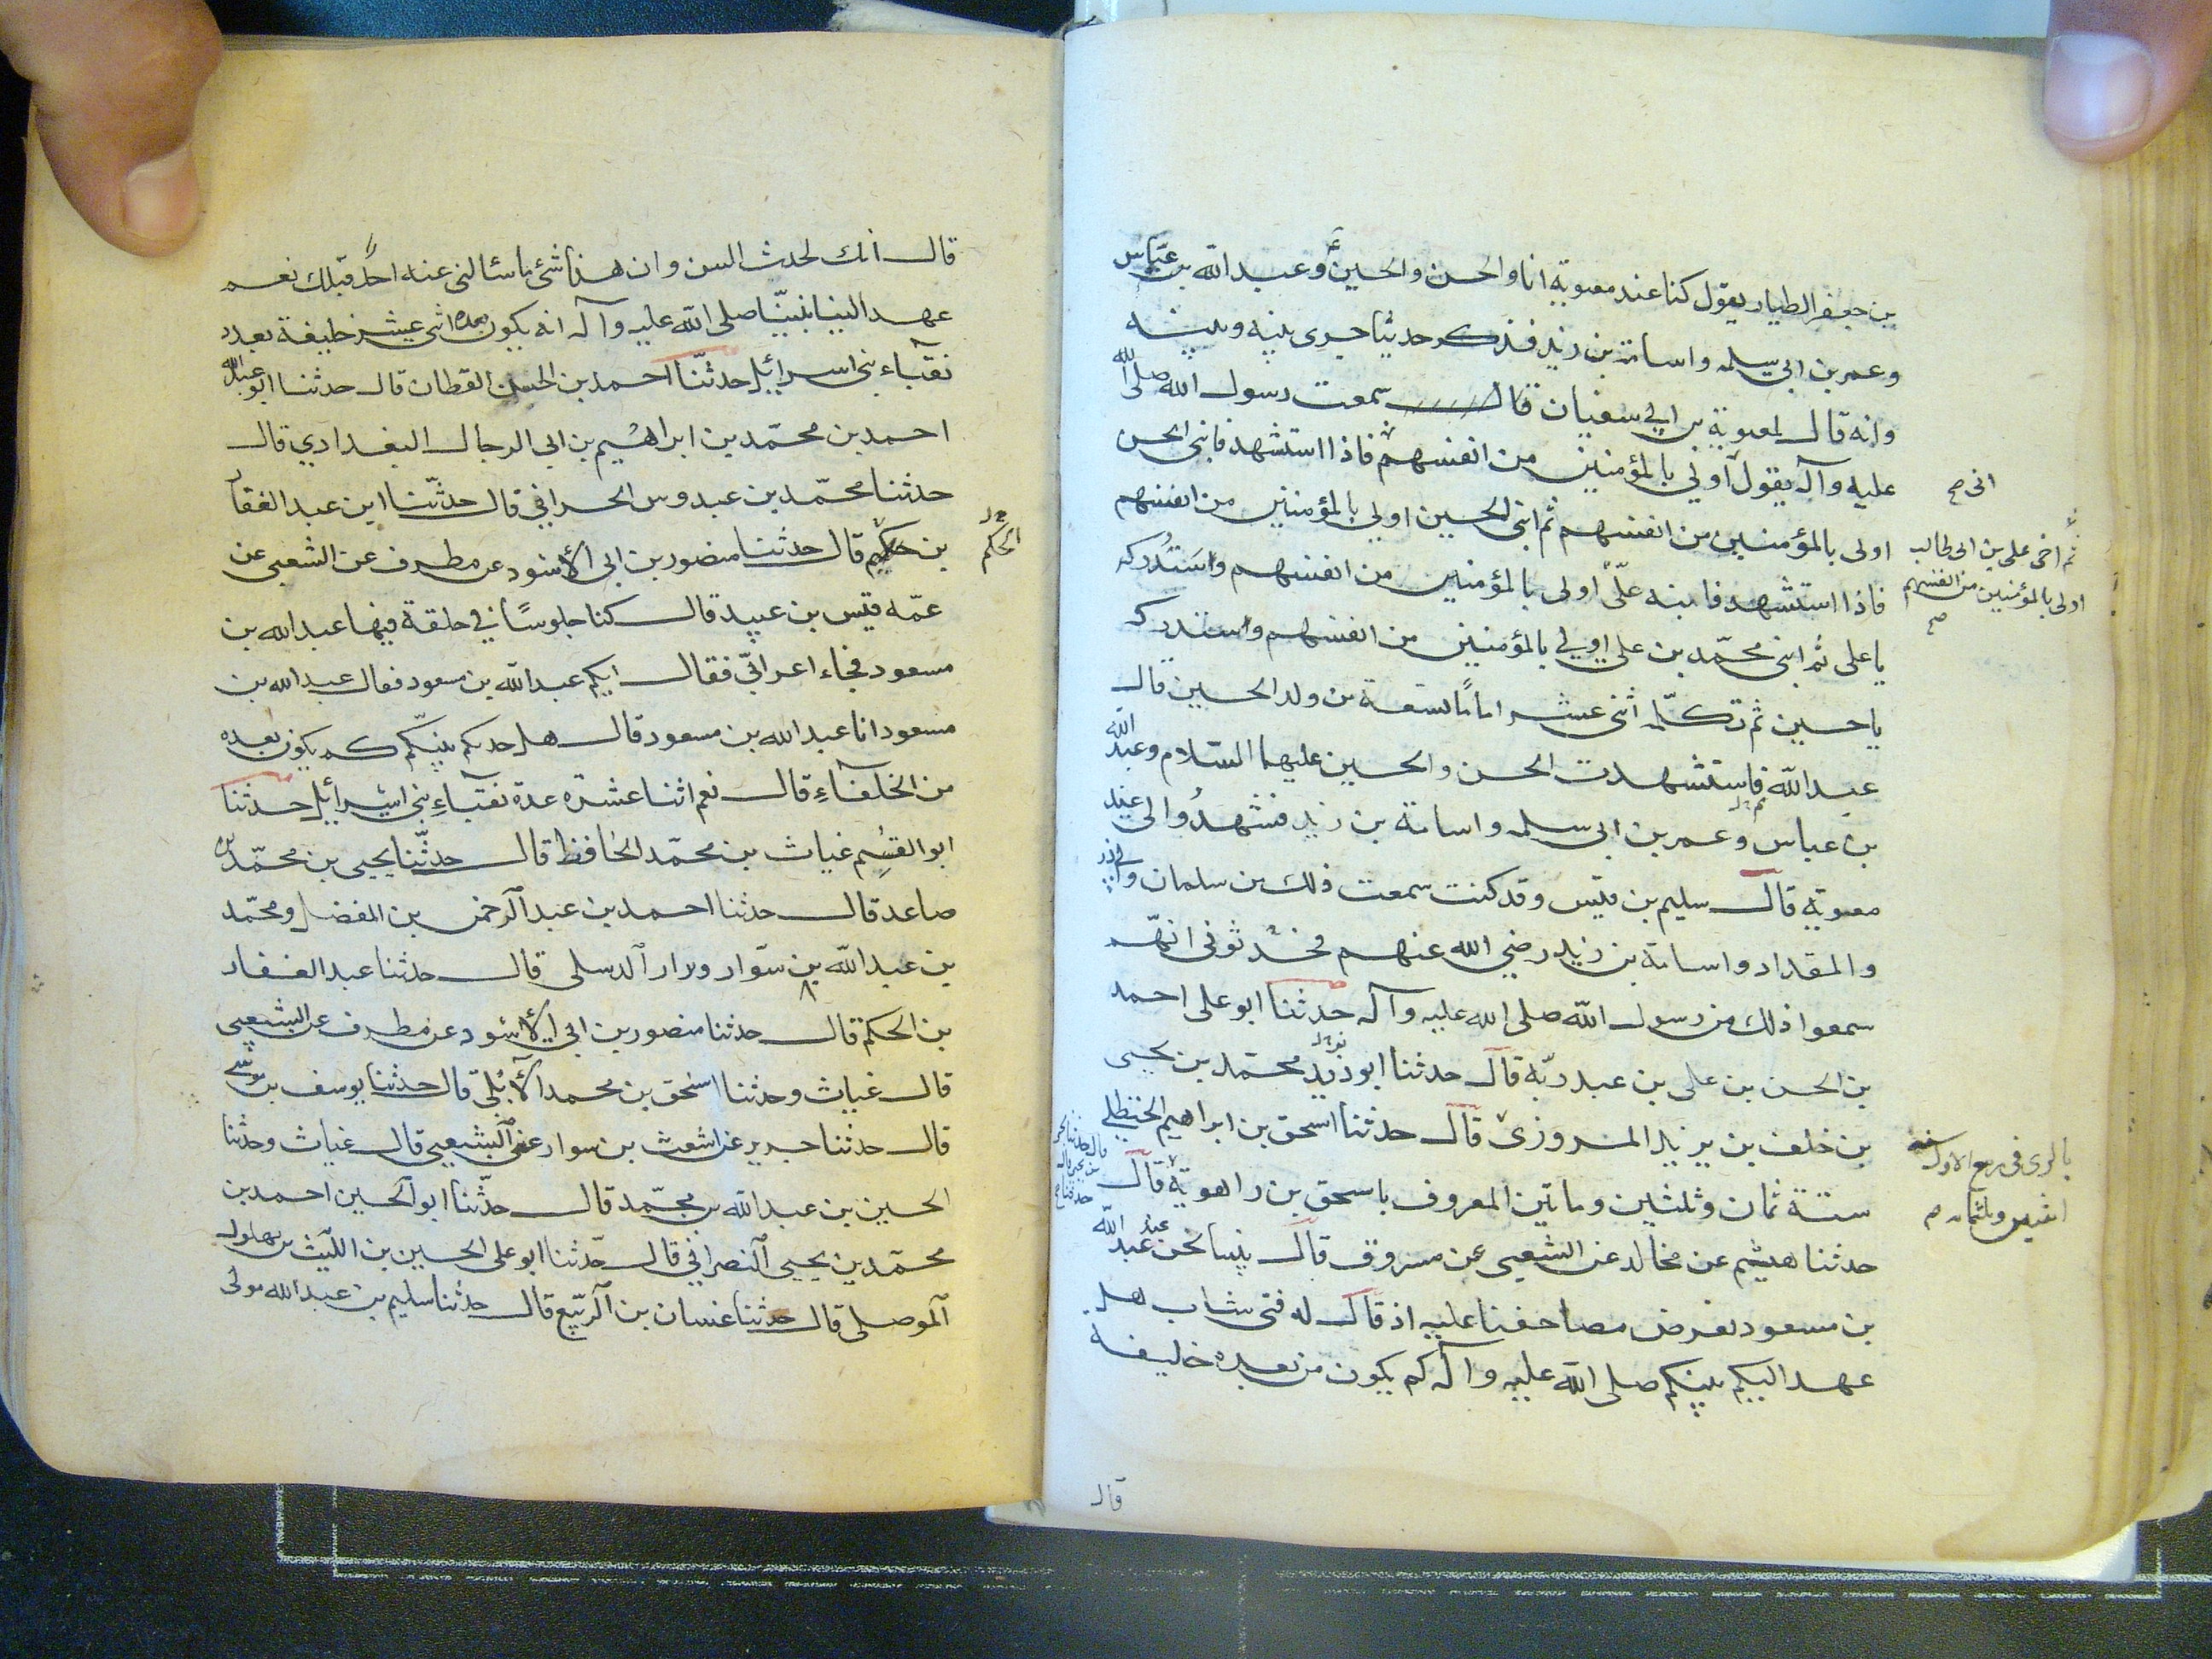 بن جعفر الطيار يقول كنا عند معوية انا والحسن والحسين وعبد الله بن عباس
وعمر بن ابي سلمه واسامة بن زيد فذكر حديثا جرى بينه وبينه
وانه قال لمعوية بن ابي سفيان قال سمعت رسول الله صلى الله
عليه وآله يقول اولي بالمؤمنين من انفسهم فاذا استشهد فابنى الحسن
انى صح
اولى بالمؤمنين من انفسهم ثم ابنى الحسين اولي بالمؤمنين من انفسهم
ثم اخى على بن ابى طالب
اولى بالمؤمنين من انفسهم
صح
فاذا استشهد فابنه علىّ اولى بالمؤمنين من انفسهم واستدركه
يا على ثم ابنى محمّد بن على اولي بالمؤمنين من انفسهم واستدركه
يا حسين ثم تكمّله اثنى عشر اماماً تسعة من ولد الحسين قال
عبد الله فاستشهدت الحسن والحسين عليهما السلام وعبد الله
بن عباس وعمر بن ابى سلمه واسامة بن زيد فشهدوا لى عند
معوية قال سليم بن قيس وقد كنت سمعت ذلك من سلمان وابى ذر
والمقداد واسامة بن زيد رضي الله عنهم فحدثونى انهم
سمعوا ذلك من رسول الله صلى الله عليه وآله حدثنا ابو على احمد
بن الحسن بن على بن عبد ربّه قال حدثنا ابو زيد محمّد بن يحيى
بن خلف بن يزيد المروزى قال حدثنا اسحق بن ابراهيم الحنظلى
بالرى فى ربيع الاول سنة
اثنين وثلثمائه صح
سنة ثمان وثلثين وماتين المعروف باسحق بن راهوية قال
قال حدثنا يحيى
بن يحيى قال
حدثنا صح
حدثنا هيثم عن مخالد عن الشعبى عن مسروق قال بينا نحن عند عبد الله
بن مسعود نعرض مصاحفنا عليه اذ قال له فتى شاب هل
عهد اليكم نبيكم صلى الله عليه وآله كم يكون من بعده خليفة
قال
قال انك لحدث السن وان هذا شئ ما سئالنى عنه احدٌ قبلك نعم
عهد الينا نبيّنا صلى الله عليه وآله انه يكون بعده اثنى عشر خليفة بعدد
نقباء بنى اسرائيل حدثنا احمد بن الحسن القطان قال حدثنا ابو عبد الله
احمد بن محمّد بن ابراهيم بن ابى الرجال البغدادي قال
حدثنا محمّد بن عبدوس الحراني قال حدثنا ابن عبد الغفار
بن حكيم قال حدثنا منصور بن ابى الأسود عن مطرف عن الشعبى عن
الحكم
عمّه قيس بن عبيد قال كنا جلوسًا في حلقة فيها عبد الله بن
مسعود فجاء اعرابىّ فقال ايكم عبد الله بن مسعود فقال عبد الله بن
مسعود انا عبد الله بن مسعود قال هل حدكم نبيكم كم يكون بعده
من الخلفاء قال نعم اثنا عشره عدة نقباء بنى اسرائيل حدثنا
ابو القسم غياث بن محمّد الحافظ قال حدثنا يحيى بن محمّد بن
صاعد قال حدثنا احمد بن عبد الرحمن بن المفضل ومحمّد
بن عبد الله بن سوّار قال حدثنا عبد الغفار
بن الحكم قال حدثنا منصور بن ابي الأسود عن مطرف عن الشعبي
قال غياث وحدثنا اسحق بن محمد الأبلىّ قال حدثنا يوسف بن موسى
قال حدثنا جرير عن اشعث بن سوار عن الشعبي قال غياث وحدثنا
الحسين بن عبد الله بن محمّد قال حدّثنا ابو الحسين احمد بن
محمّد بن يحيى النصراني قال حدّثنا ابو على الحسين بن الليث بن بهلول
الموصلى قال حدثنا غسان بن الربيع قال حدثنا سليم بن عبد الله مولى